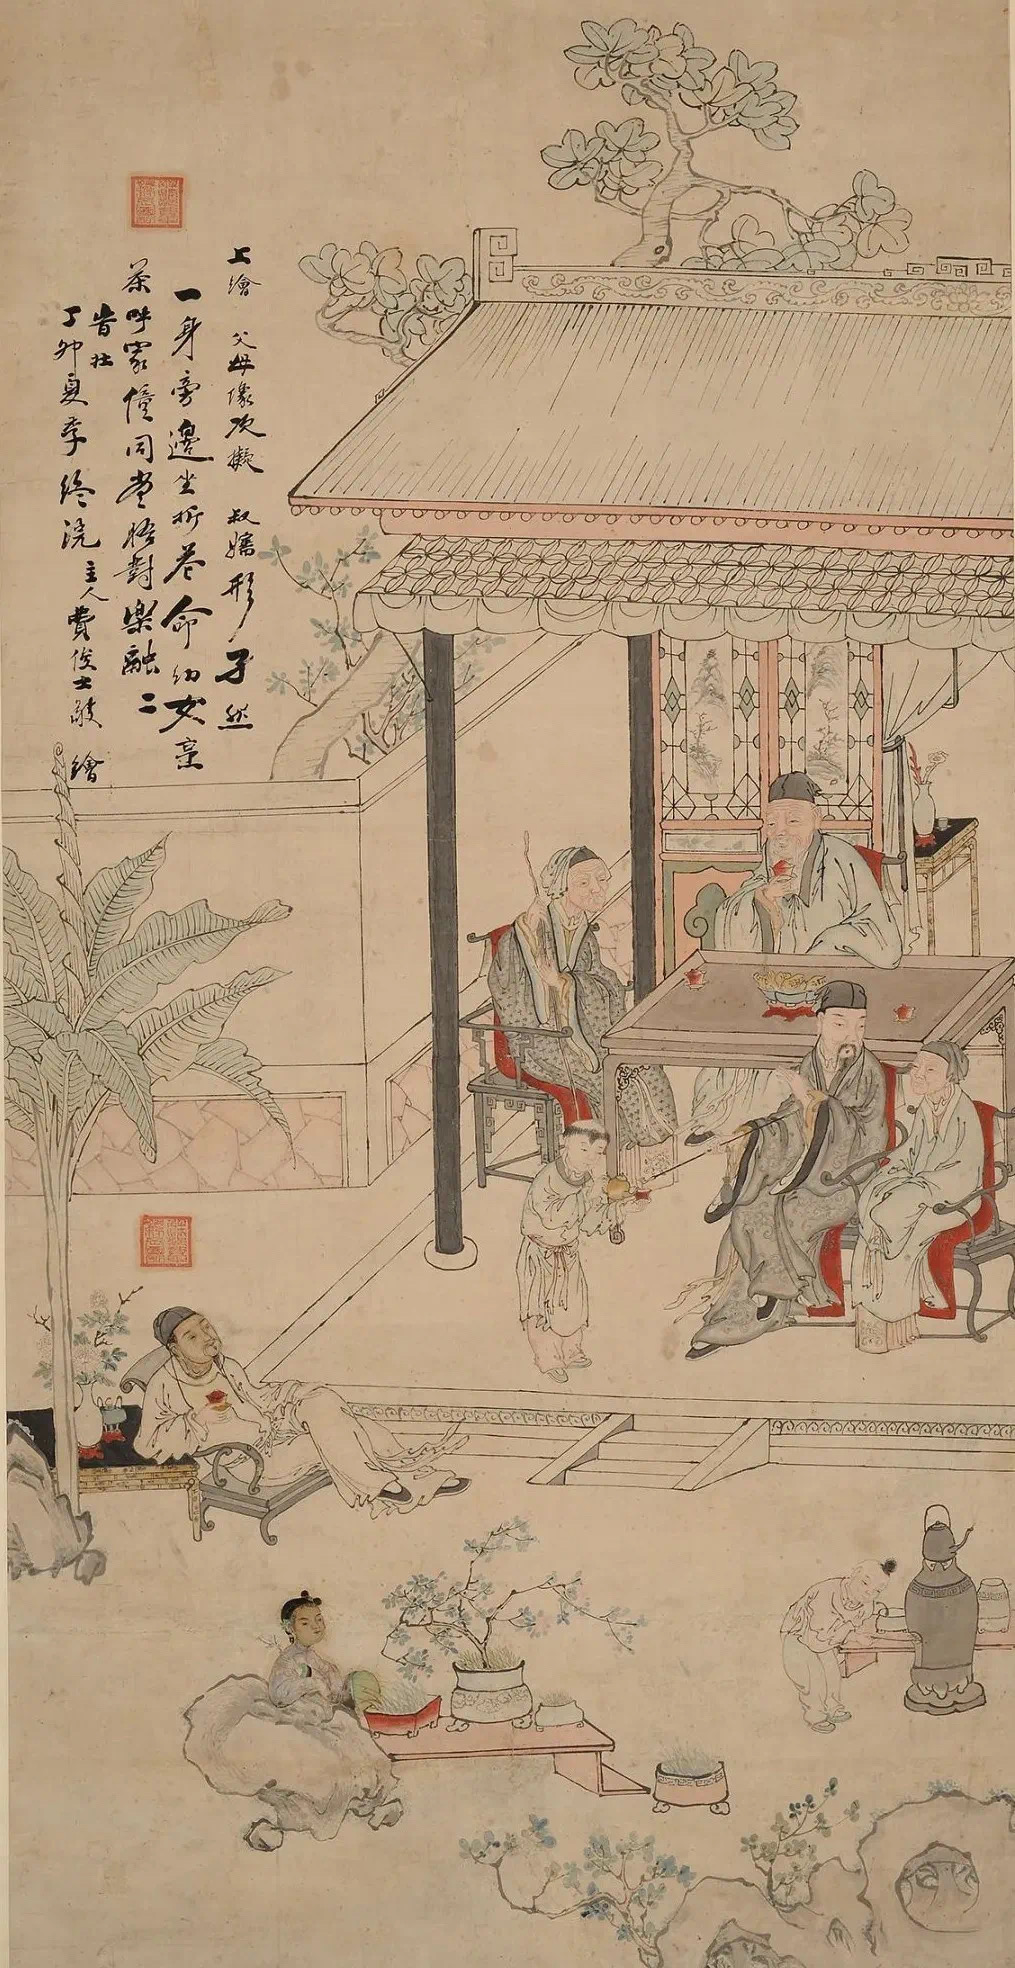 上繪 父母像次擬 叔嬸形孑然
一身旁邊坐折花命幼女烹
茶呼家僮同堂晤對樂融二
旹在
丁卯夏季終浣主人費俊士敬繪